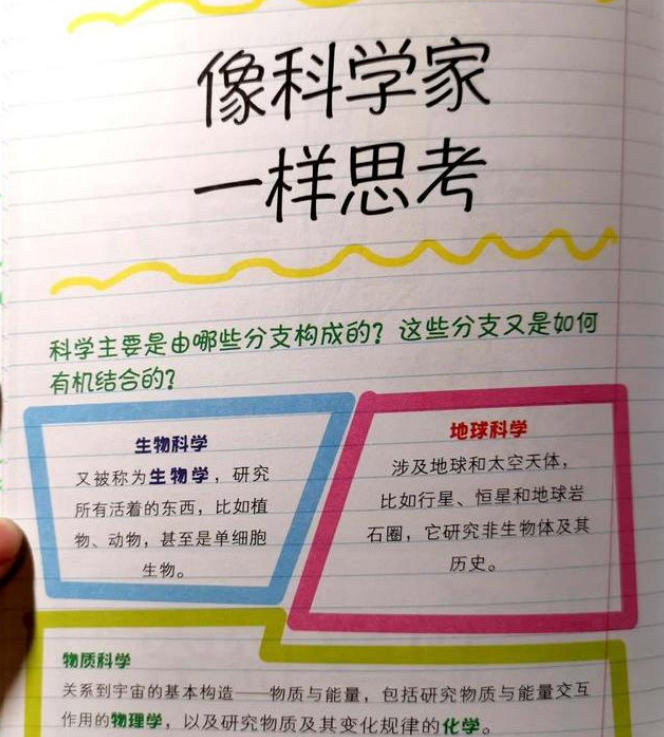 像科学家
一样思考
科学主要是由哪些分支构成的？这些分支又是如何
有机结合的？
生物科学
又被称为生物学，研究
所有活着的东西，比如植
物、动物，甚至是单细胞
生物。
地球科学
涉及地球和太空天体，
比如行星、恒星和地球岩
石圈，它研究非生物体及其
历史。
物质科学
关系到宇宙的基本构造——物质与能量，包括研究物质与能量交互
作用的物理学，以及研究物质及其变化规律的化学。